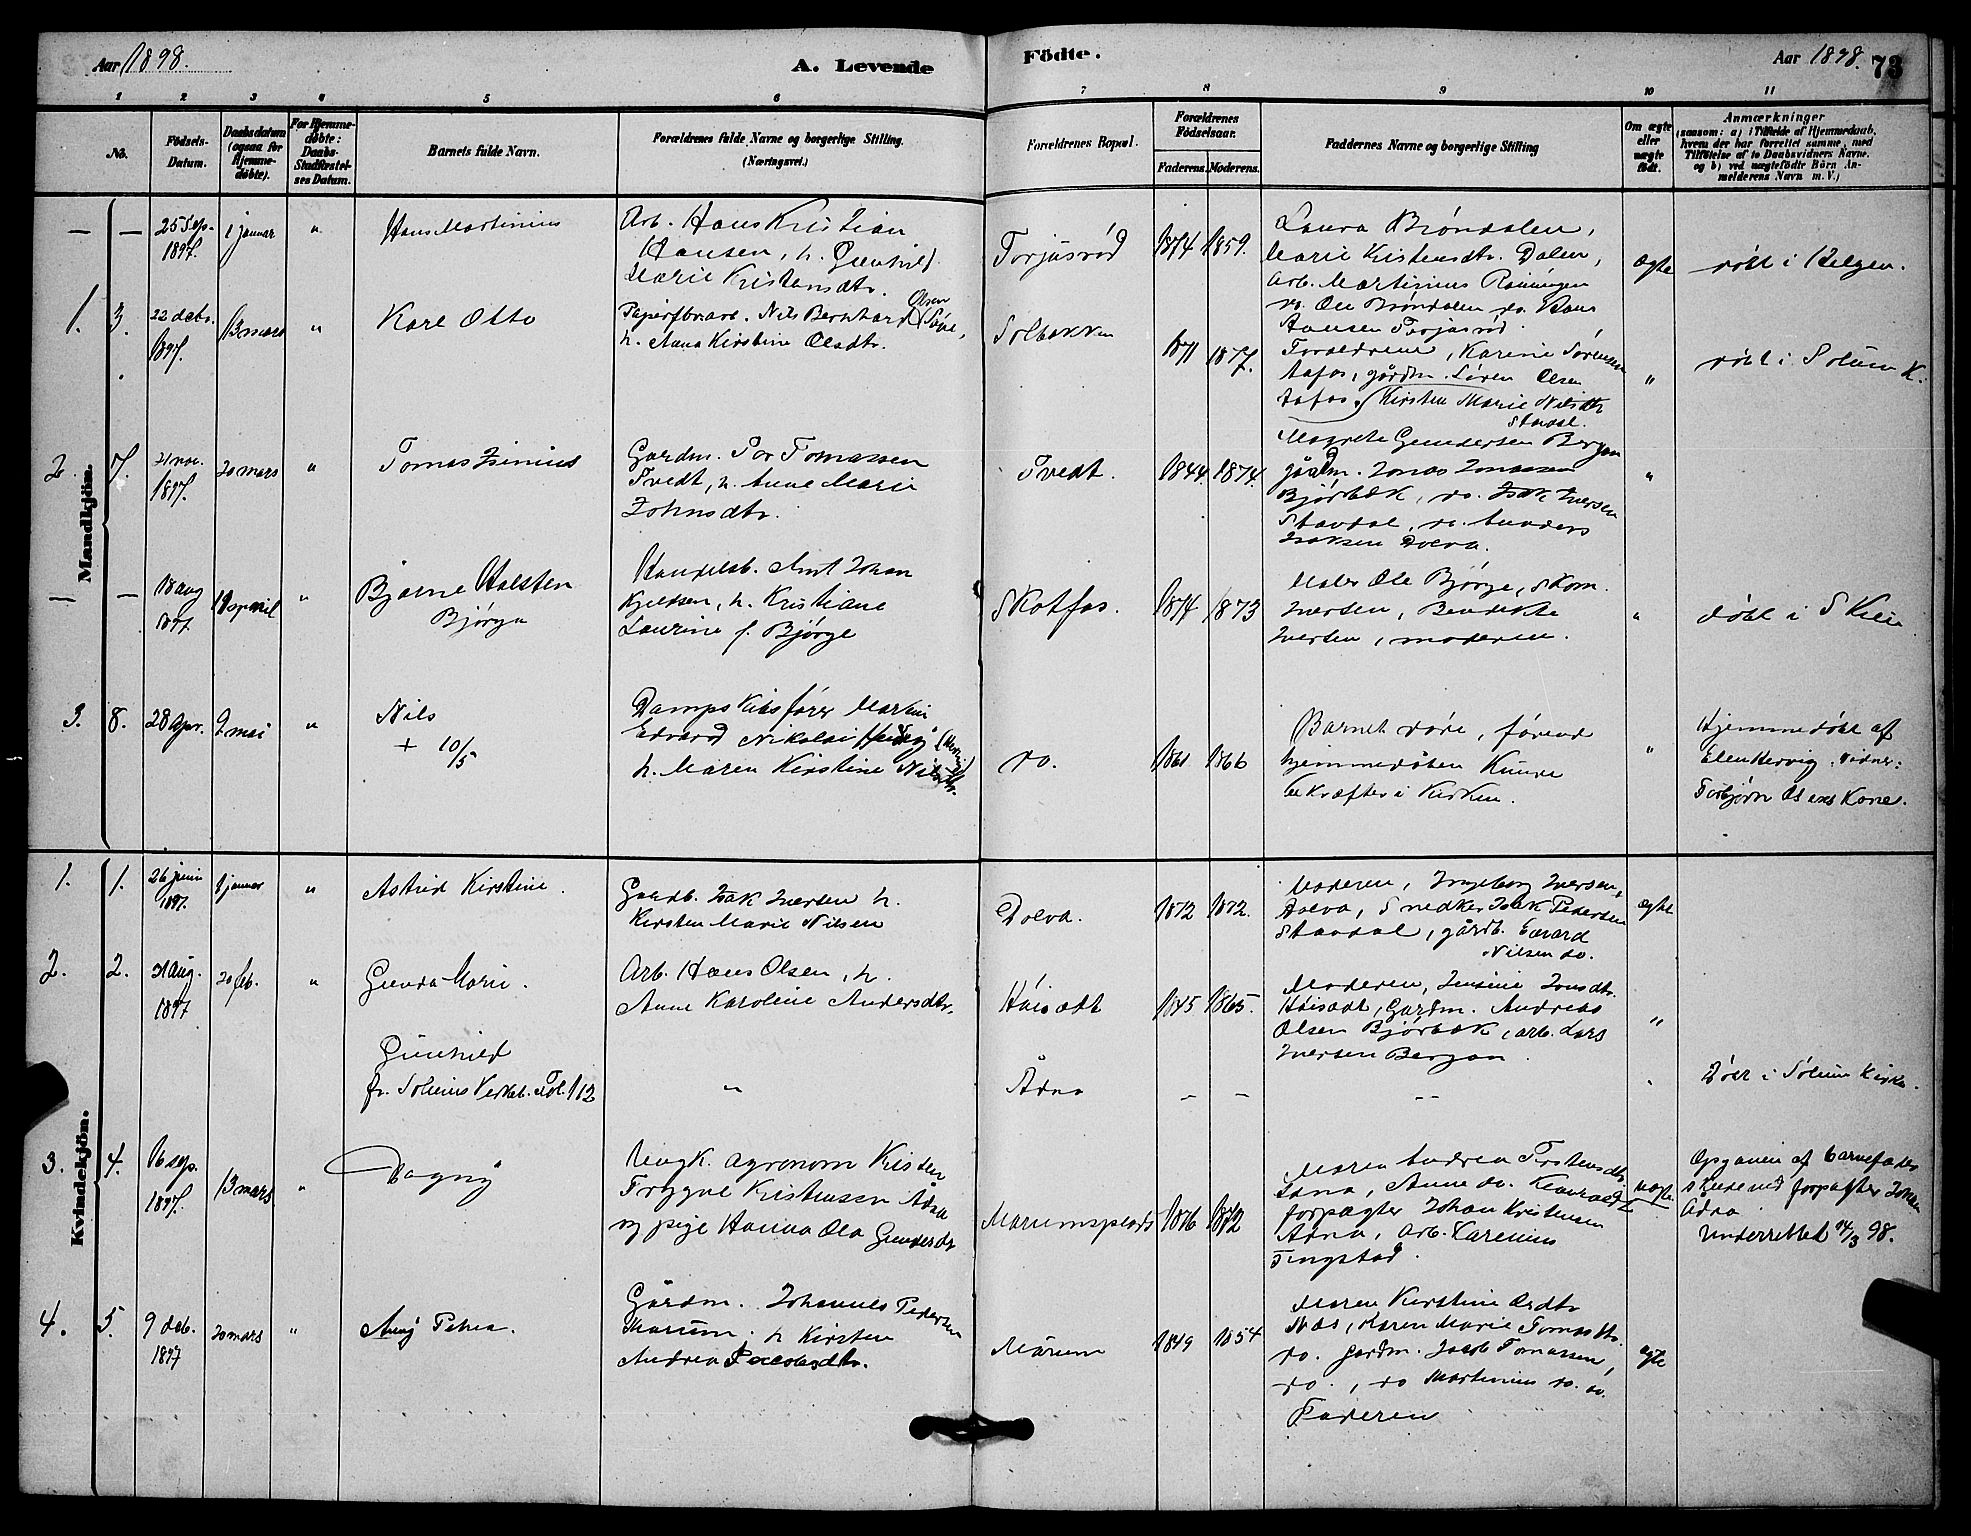 Aar 1898.
A. Levende
Födte.
Aar 1898. 73
1 2 3 4 5 6 7 8 9 10 11
No.
Födsels-
Datum.
Daabsdatum
(ogsaa for
Hjemme-
döbte).
For Hjemme-
döbte:
Daabs-
Stadfæstel-
ses Datum.
Barnets fulde Navn.
Forældrenes fulde Navne og borgerlige Stilling.
(Næringsvei.)
Forældrenes Bopæl.
Forældrenes
Födselsaar.
Faderens. Moderens.
Faddernes Navne og borgerlige Stilling
Om ægte
eller
uægte
födt.
Anmærkninger
(saasom: a) i Tilfælde af Hjemmedaab,
hvem der har forrettet samme, med
Tilföielse af to Daabsvidners Navne,
og b) ved uægtefödte Börn An-
melderens Navn m. V.)
Mandkjön.
— — 25 Sep.
1897.
1 januar
"
Hans Martinius
Arb. Hans Kristian
Hansen, h. Gunhild
Marie Kristensdtr.
Torjusrød
1874 1859.
Laura Brøndalen,
Marie Kristensdtr. Dalen,
Arb. Martinius Rønningen
do. Ole Brøndalen do. Hans
Hansen Torjusrød.
ægte
døbt i Helgen.
1. 3. 22 decb.
1897.
13 mars
"
Karl Otto
Papirfbr.arb. Nils Bernhard Olsen
h. Anna Kirstine Olsdtr.
Solbakken
1871 1877.
Forældrene, Karine Sørensen
Aafos, gårdm. Søren Olsen
Aafos, Kirsten Marie Nilsdtr
Stavdal.
"
døbt i Solum K.
2. 7. 21 nov.
1897.
20 mars
"
Tomas Isinius
Gårdm. Tor Tomassen
Tvedt, h. Anne Marie
Johnsdtr.
Tvedt.
1844. 1874.
Magrete Gundersen Bergan
gårdm. Jonas Jonassen
Bjørbæk, do. Isak Iversen
Stavdal, do. Anders
Isaksen Dolva.
"
— — 18 aug
1897.
"
Bjarne Halsten
Bjørge
Handelsb. Amt Johan
Kjeldsen, h. Kristiane
Laurine f. Bjørge
Skotfos.
1874 1873
Maler Ole Bjørge, Skom.
Iversen, Bendikte
Iversen, moderen.
"
døbt i Skien
3. 8. 28 apr.
2 mai
"
Nils
+ 10/5
Dampskibsfører Martin
Edvard Nikolai
h. Maren Kirstine Nilsdtr.
do.
1861 1866
Barnet døde, førend
hjemmedåben kunde
bekræftes i Kirken.
"
Hjemmedøbt af
Elen Hervig. Vidner:
Torbjørn Olsens Kone.
Kvindekjön.
1. 1. 26 juni
1897.
januar
"
Astrid Kirstine.
Gårdb. Isak Iversen h.
Kirsten Marie Nilsen
Dolva.
1872 1872.
Moderen, Ingeborg Iversen,
Dolva, Snedker Isak Pedersen
Stavdal, gårdb. Edvard
Nilsen do.
ægte
2. 2. 21 Aug.
1897
20 feb.
"
Gunda Marie.
Arb. Hans Olsen, h.
Anne Karoline Andersdtr.
Høisæt
1845 1865.
Moderen, Jensine Jonsdtr.
Høisæt, Gårdm. Andreas
Olsen Bjørbæk, arb. Lars
Iversen Bergan.
"
Gunhild
fr. Solums Kirkeb. Fol. 112
"
Ådna
— —
— —
"
Døbt i Solum Kirke.
3. 4. 16 sep.
1897.
13 mars
"
Dagny
Ungk. agronom Kirsten
Trygve Kristensen Ådna
og pige Hanna Ola Gundersdtr
Marumsplads
1876 1872
Maren Andrea Torstensdtr
Ladna, Anne do.
forpagter Johan Kristensen
Ådna, Arb. Karenius
Tingstad.
uægte
Opgiven af barnefader
skude ved forpagter Johan
Ådna.
Underrettet 14/3 98.
4. 5. 9 deb.
1897
20 mars
"
Anny Petrea.
Gårdm. Johannes Pedersen
Marum. h Kirsten
Andrea
Mårum
1849 1854
Maren Kirstine
Næs, Karen Marie Tomasdtr.
do. gårdm. Jacob Tomassen,
do., do Martinius do. do.
Faderen
ægte